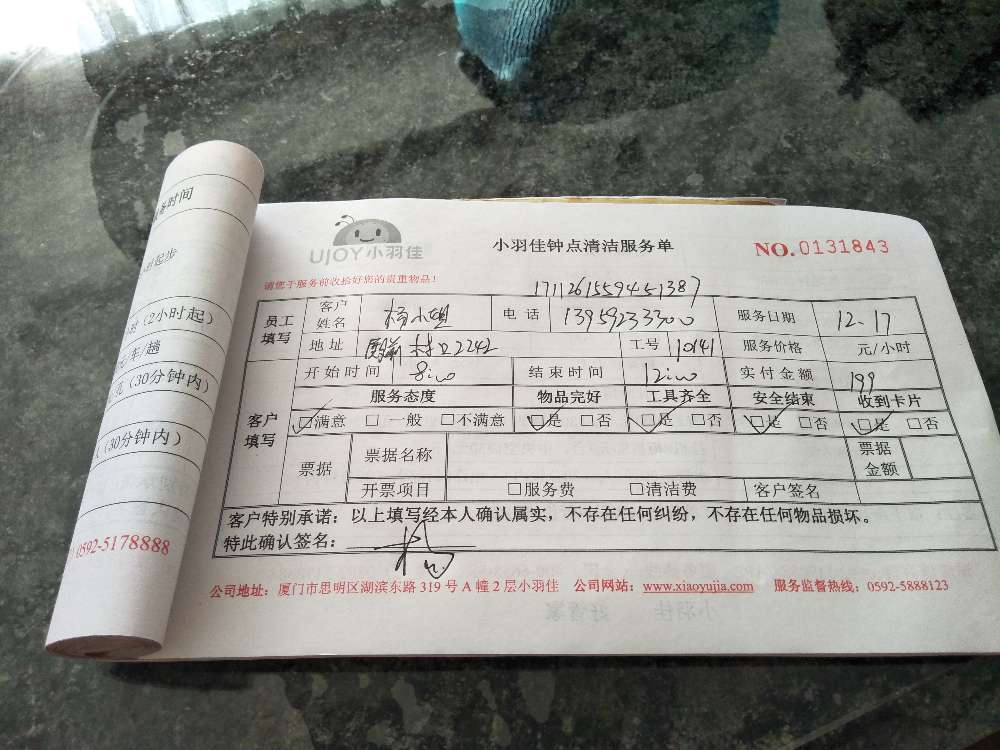 务时间
时起步
时（2小时起）
元/车/趟
（30分钟内）
（30分钟内）
0592-5178888
UJOY小羽佳
小羽佳钟点清洁服务单
NO.0131843
请您于服务前收拾好您的贵重物品！
1711261559451387
员工填写 客户姓名 杨小姐 电话 13959233300 服务日期 12.17
地址 村口2242 工号 10141 服务价格 元/小时
客户填写 开始时间 8:00 结束时间 12:00 实付金额 199
服务态度 物品完好 工具齐全 安全结束 收到卡片
☑满意 □一般 □不满意 ☑是 □否 ☑是 □否 ☑是 □否 ☑是 □否
票据 票据名称 票据金额
开票项目 □服务费 □清洁费 客户签名
客户特别承诺：以上填写经本人确认属实，不存在任何纠纷，不存在任何物品损坏。
特此确认签名：
公司地址：厦门市思明区湖滨东路 319 号 A 幢 2 层小羽佳 公司网站：www.xiaoyujia.com 服务监督热线：0592-5888123